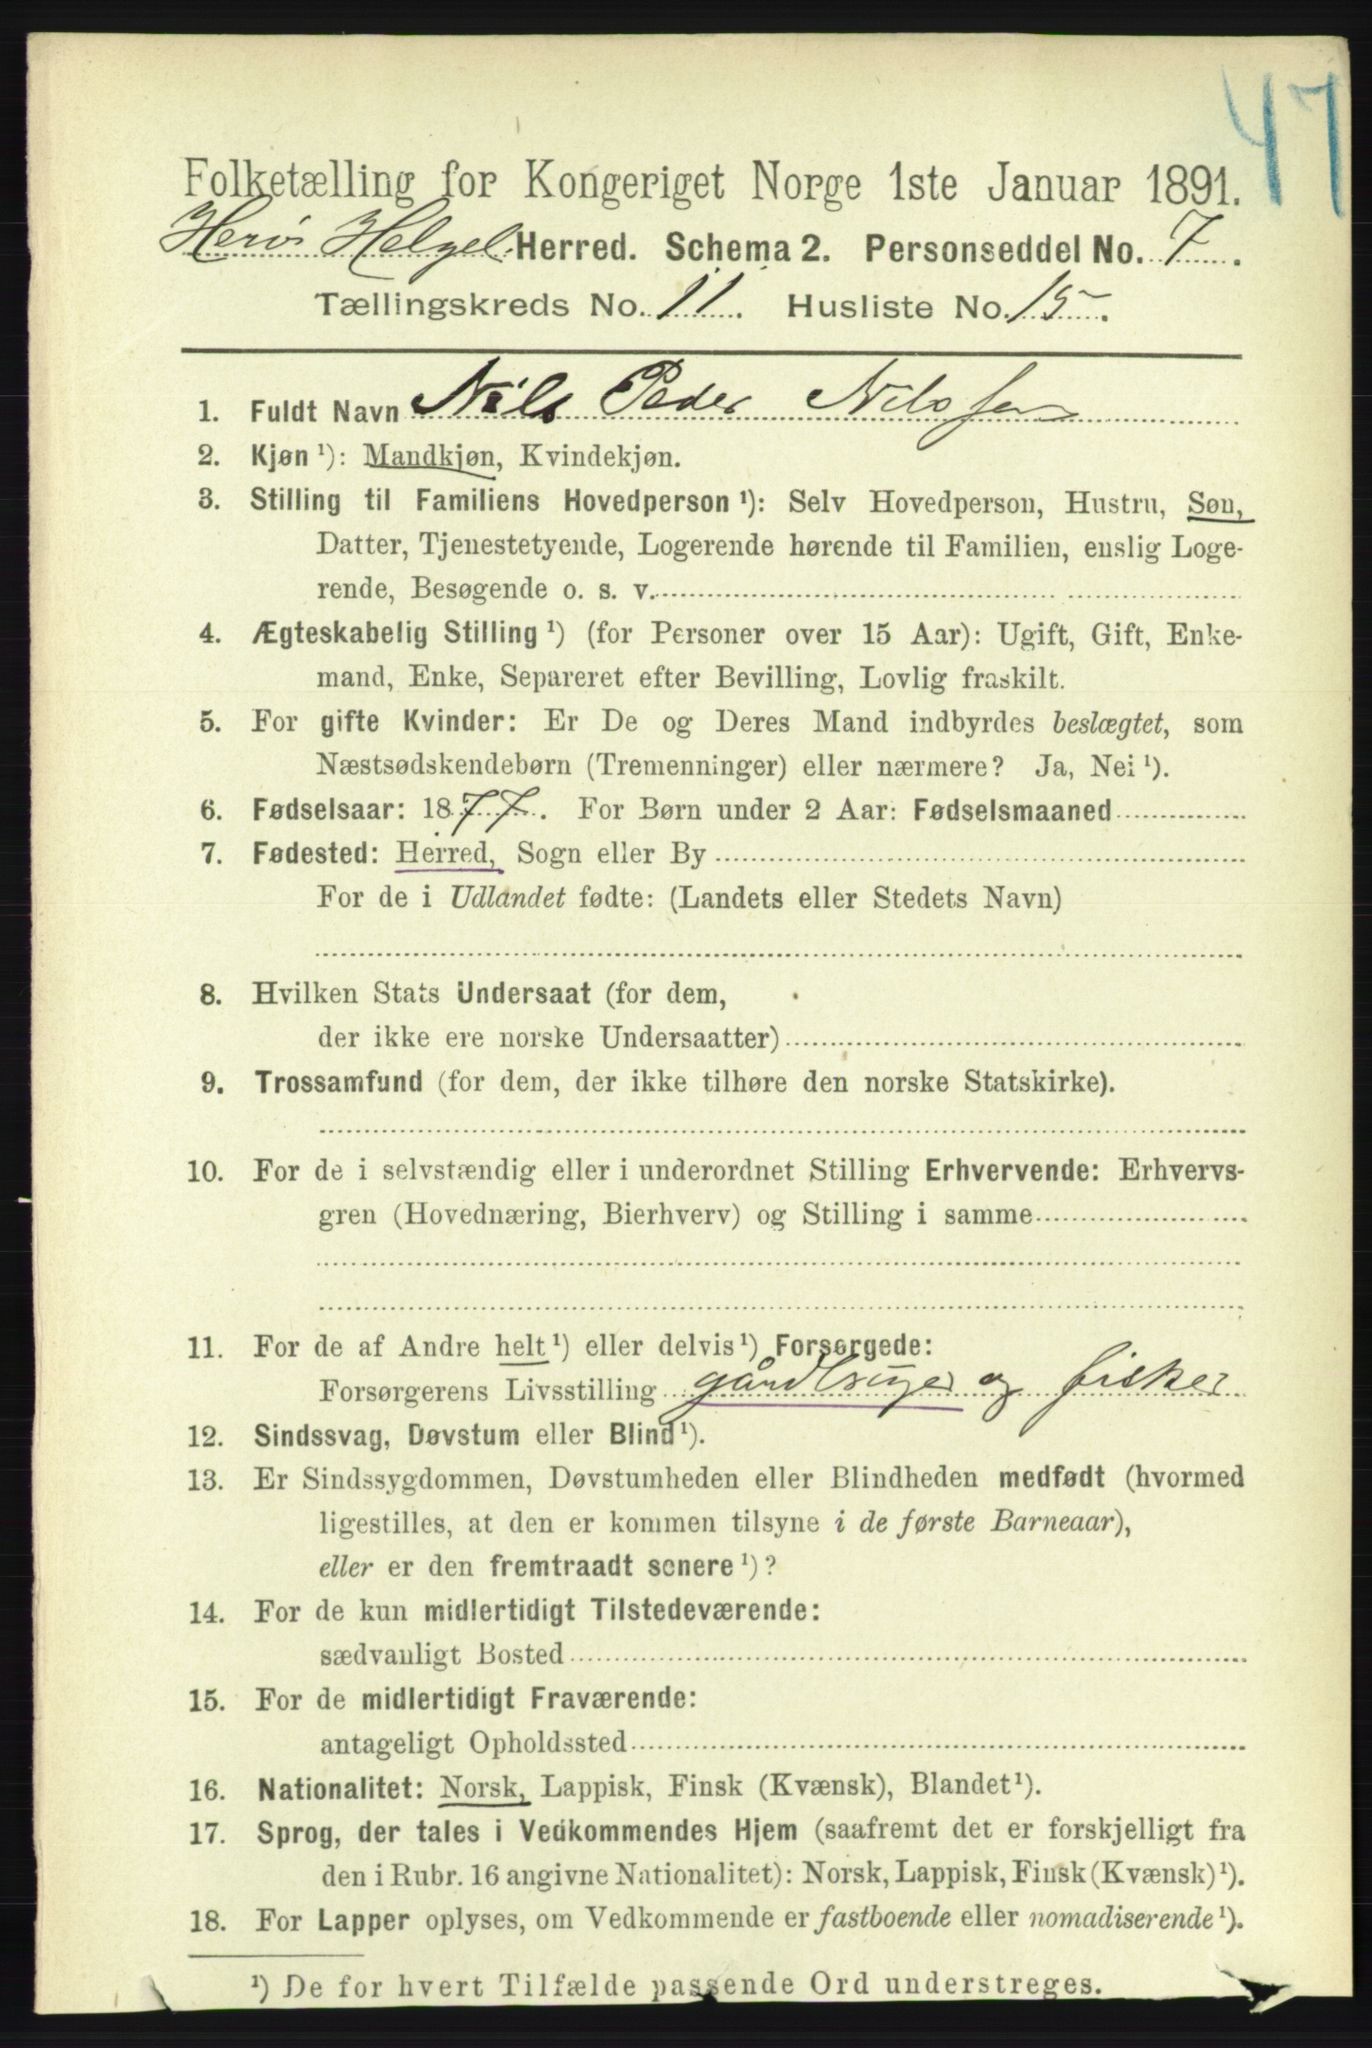 47
Folketælling for Kongeriget Norge 1ste Januar 1891.
Herø Helgel. Herred. Schema 2. Personseddel No. 7.
Tællingskreds No. 11. Husliste No. 15.
1. Fuldt Navn Nils Peder Nilssen
2. Kjøn ¹): Mandkjøn, Kvindekjøn.
3. Stilling til Familiens Hovedperson ¹): Selv Hovedperson, Hustru, Søn,
Datter, Tjenestetyende, Logerende hørende til Familien, enslig Loge-
rende, Besøgende o. s. v.
4. Ægteskabelig Stilling ¹) (for Personer over 15 Aar): Ugift, Gift, Enke-
mand, Enke, Separeret efter Bevilling, Lovlig fraskilt.
5. For gifte Kvinder: Er De og Deres Mand indbyrdes beslægtet, som
Næstsødskendebørn (Tremenninger) eller nærmere? Ja, Nei ¹).
6. Fødselsaar: 1877. For Børn under 2 Aar: Fødselsmaaned
7. Fødested: Herred, Sogn eller By
For de i Udlandet fødte: (Landets eller Stedets Navn)
8. Hvilken Stats Undersaat (for dem,
der ikke ere norske Undersaatter)
9. Trossamfund (for dem, der ikke tilhøre den norske Statskirke).
10. For de i selvstændig eller i underordnet Stilling Erhvervende: Erhvervs-
gren (Hovednæring, Bierhverv) og Stilling i samme
11. For de af Andre helt ¹) eller delvis ¹) Forsørgede:
Forsørgerens Livsstilling gårdbruger og fisker
12. Sindssvag, Døvstum eller Blind ¹).
13. Er Sindssygdommen, Døvstumheden eller Blindheden medfødt (hvormed
ligestilles, at den er kommen tilsyne i de første Barneaar),
eller er den fremtraadt senere ¹)?
14. For de kun midlertidigt Tilstedeværende:
sædvanligt Bosted
15. For de midlertidigt Fraværende:
antageligt Opholdssted
16. Nationalitet: Norsk, Lappisk, Finsk (Kvænsk), Blandet ¹).
17. Sprog, der tales i Vedkommendes Hjem (saafremt det er forskjelligt fra
den i Rubr. 16 angivne Nationalitet): Norsk, Lappisk, Finsk (Kvænsk) ¹).
18. For Lapper oplyses, om Vedkommende er fastboende eller nomadiserende ¹).
¹) De for hvert Tilfælde passende Ord understreges.